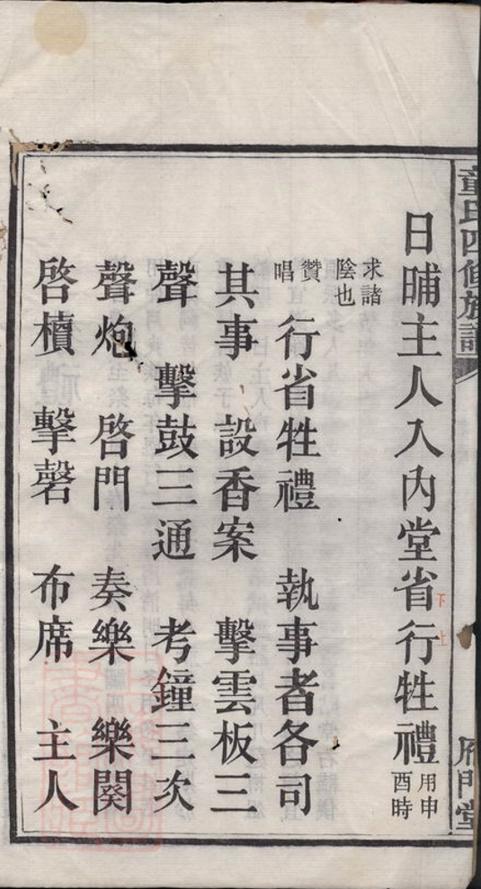 童氏四修族譜
雁門堂
日晡主人入內堂省行牲禮用申酉時
下上
求諸陰也
贊唱 行省牲禮 執事者各司
其事 設香案 擊雲板三
聲 擊鼓三通 考鐘三次
聲炮 啓門 奏樂 樂闋
啓櫝 擊磬 布席 主人